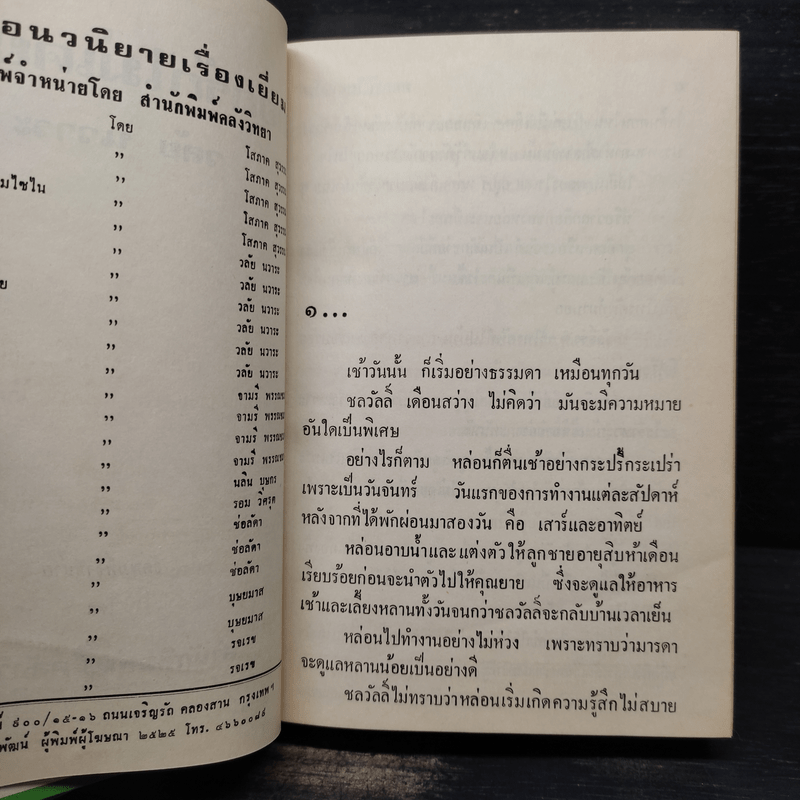 อนวนิยายเรื่องเยี่ยม
พ์จำหน่ายโดย สำนักพิมพ์คลังวิทยา
โดย
,, โสภาค สุวรรณ
,, โสภาค สุวรรณ
มไซไน ,, โสภาค สุวรรณ
,, โสภาค สุวรรณ
,, โสภาค สุวรรณ
,, วลัย นวาระ
ย ,, วลัย นวาระ
,, วลัย นวาระ
,, วลัย นวาระ
,, วลัย นวาระ
,, วลัย นวาระ
,, จามรี พรรณชมพู
,, จามรี พรรณชมพู
,, จามรี พรรณชมพู
,, จามรี พรรณชมพู
,, นลิน บุษกร
,, รอม วิศรุต
,, ช่อลัดา
,, ช่อลัดา
,, ช่อลัดา
,, บุษยมาส
,, บุษยมาส
,, รจเรข
,, รจเรข
ที่ ๘๐๐/๑๕-๑๖ ถนนเจริญรัถ คลองสาน กรุงเทพฯ
พัฒน์ ผู้พิมพ์ผู้โฆษณา ๒๕๒๕ โทร. ๔๖๖๐๐๘๘
๑...
เช้าวันนั้น ก็เริ่มอย่างธรรมดา เหมือนทุกวัน
ชลวัลลิ์ เดือนสว่าง ไม่คิดว่า มันจะมีความหมาย
อันใดเป็นพิเศษ
อย่างไรก็ตาม หล่อนก็ตื่นเช้าอย่างกระปรี้กระเปร่า
เพราะเป็นวันจันทร์ วันแรกของการทำงานแต่ละสัปดาห์
หลังจากที่ได้พักผ่อนมาสองวัน คือ เสาร์และอาทิตย์
หล่อนอาบน้ำและแต่งตัวให้ลูกชายอายุสิบห้าเดือน
เรียบร้อยก่อนจะนำตัวไปให้คุณยาย ซึ่งจะดูแลให้อาหาร
เช้าและเลี้ยงหลานทั้งวันจนกว่าชลวัลลิ์จะกลับบ้านเวลาเย็น
หล่อนไปทำงานอย่างไม่ห่วง เพราะทราบว่ามารดา
จะดูแลหลานน้อยเป็นอย่างดี
ชลวัลลิ์ไม่ทราบว่าหล่อนเริ่มเกิดความรู้สึกไม่สบาย